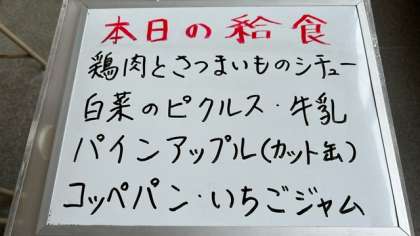 本日の給食
鶏肉とさつまいものシチュー
白菜のピクルス・牛乳
パインアップル(カット缶)
コッペパン・いちごジャム